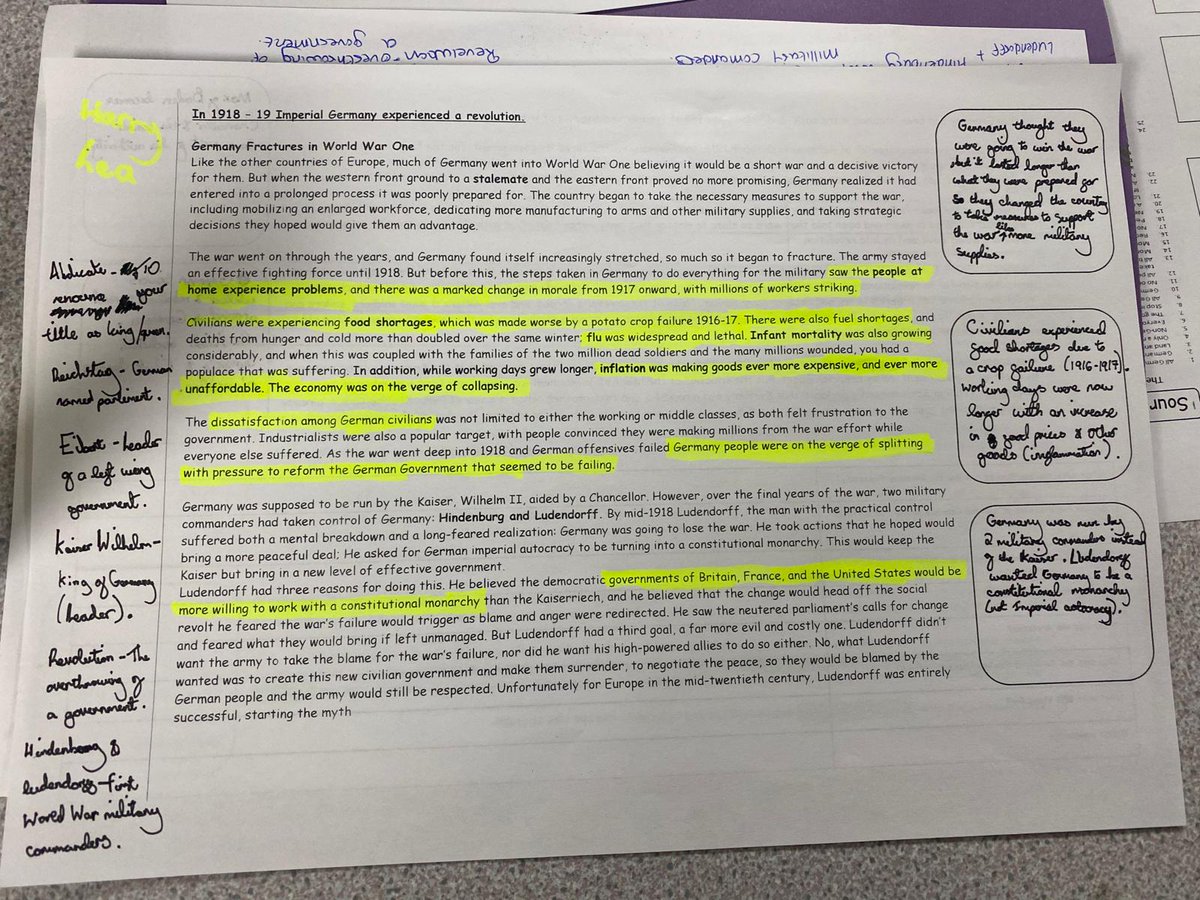 Revelution - overthrowing of
a government.
Hindenburg
millitary comanders.
Ludendorff +
Harry
Lea
In 1918 - 19 Imperial Germany experienced a revolution.
Germany Fractures in World War One
Like the other countries of Europe, much of Germany went into World War One believing it would be a short war and a decisive victory
for them. But when the western front ground to a stalemate and the eastern front proved no more promising, Germany realized it had
entered into a prolonged process it was poorly prepared for. The country began to take the necessary measures to support the war,
including mobilizing an enlarged workforce, dedicating more manufacturing to arms and other military supplies, and taking strategic
decisions they hoped would give them an advantage.
The war went on through the years, and Germany found itself increasingly stretched, so much so it began to fracture. The army stayed
an effective fighting force until 1918. But before this, the steps taken in Germany to do everything for the military saw the people at
home experience problems, and there was a marked change in morale from 1917 onward, with millions of workers striking.
Civilians were experiencing food shortages, which was made worse by a potato crop failure 1916-17. There were also fuel shortages, and
deaths from hunger and cold more than doubled over the same winter; flu was widespread and lethal. Infant mortality was also growing
considerably, and when this was coupled with the families of the two million dead soldiers and the many millions wounded, you had a
populace that was suffering. In addition, while working days grew longer, inflation was making goods ever more expensive, and ever more
unaffordable. The economy was on the verge of collapsing.
The dissatisfaction among German civilians was not limited to either the working or middle classes, as both felt frustration to the
government. Industrialists were also a popular target, with people convinced they were making millions from the war effort while
everyone else suffered. As the war went deep into 1918 and German offensives failed Germany people were on the verge of splitting
with pressure to reform the German Government that seemed to be failing.
Germany was supposed to be run by the Kaiser, Wilhelm II, aided by a Chancellor. However, over the final years of the war, two military
commanders had taken control of Germany: Hindenburg and Ludendorff. By mid-1918 Ludendorff, the man with the practical control
suffered both a mental breakdown and a long-feared realization: Germany was going to lose the war. He took actions that he hoped would
bring a more peaceful deal; He asked for German imperial autocracy to be turning into a constitutional monarchy. This would keep the
Kaiser but bring in a new level of effective government.
Ludendorff had three reasons for doing this. He believed the democratic governments of Britain, France, and the United States would be
more willing to work with a constitutional monarchy than the Kaiserriech, and he believed that the change would head off the social
revolt he feared the war's failure would trigger as blame and anger were redirected. He saw the neutered parliament's calls for change
and feared what they would bring if left unmanaged. But Ludendorff had a third goal, a far more evil and costly one. Ludendorff didn't
want the army to take the blame for the war's failure, nor did he want his high-powered allies to do so either. No, what Ludendorff
wanted was to create this new civilian government and make them surrender, to negotiate the peace, so they would be blamed by the
German people and the army would still be respected. Unfortunately for Europe in the mid-twentieth century, Ludendorff was entirely
successful, starting the myth
Abdicate - to
renounce your
title as king/queen.
Reichtag - German
named parlement.
Ebert - Leader
of a left wing
government.
Kaiser Wilhelm -
King of Germany
(Leader).
Revolution - The
overthrowing of
a government.
Hindenberg &
ludendorff - first
World War military
commanders.
Germany thought they
were going to win the war
but it lasted longer than
what they were prepared for
so they changed the country
to take measures to support
the war like more military
supplies.
Civilians experienced
food shortages due to
a crop failure (1916-1917).
Working days were now
longer with an increase
in food prices & other
goods (inflammation).
Germany was run by
2 military commanders instead
of the Kaiser. Ludendorff
wanted Germany to be a
constitutional monarchy
(not Imperial autocracy).
'Sour
The